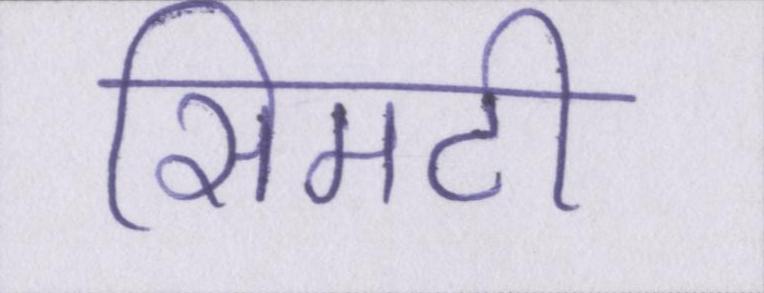 सिमटी